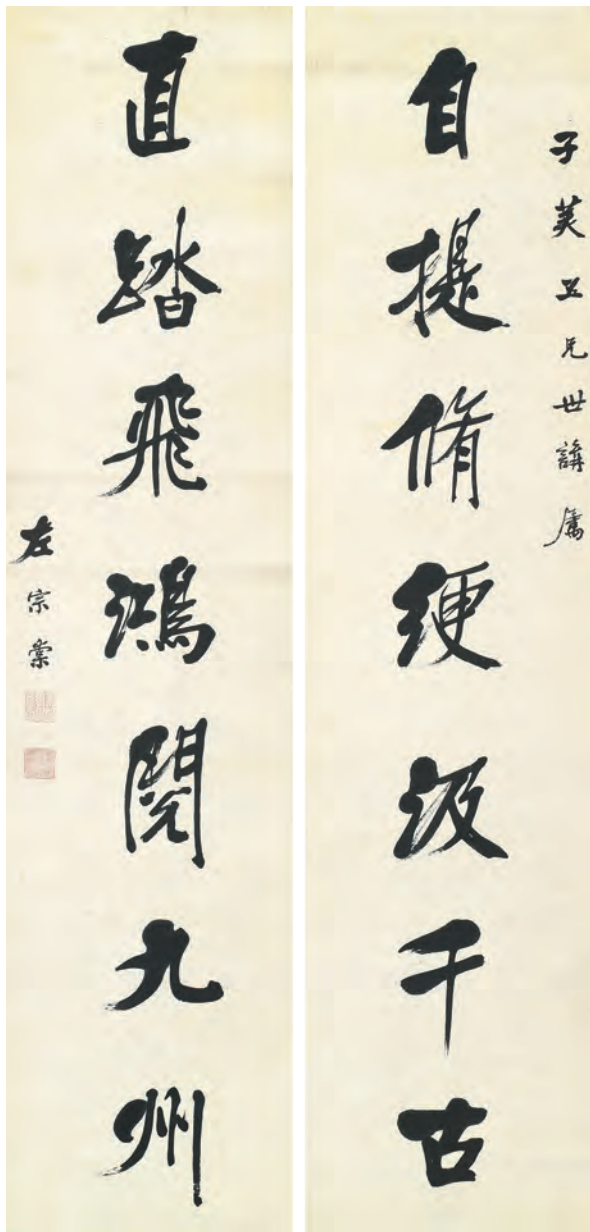 子美五兄世講屬
自提脩綆汲千古
直踏飛鴻閱九州
左宗棠